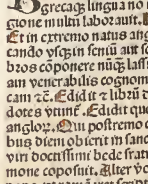 grecaqʒ lingua no
gione multū laborauit.
Et in extremo natus ang
cando vsqʒ in seniū aut
bros cōponere nūqʒ lass
am venerabilis cognom
cam ⁊c̄. Edidit ⁊ librū d
dotes vtinē. Edidit que
anglorꝝ. Qui postremo
bus diem obierit in san
viri doctissimi bede frat
mone coposuit. Alter v